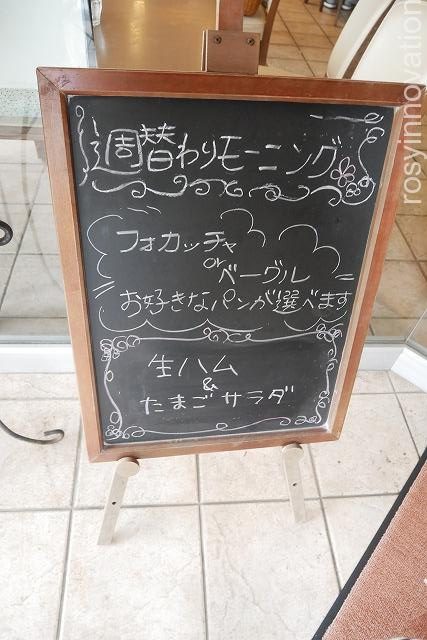 週替わりモーニング
フォカッチャ
or
ベーグル
お好きなパンが選べます
生ハム
&
たまごサラダ
rosyinnovation